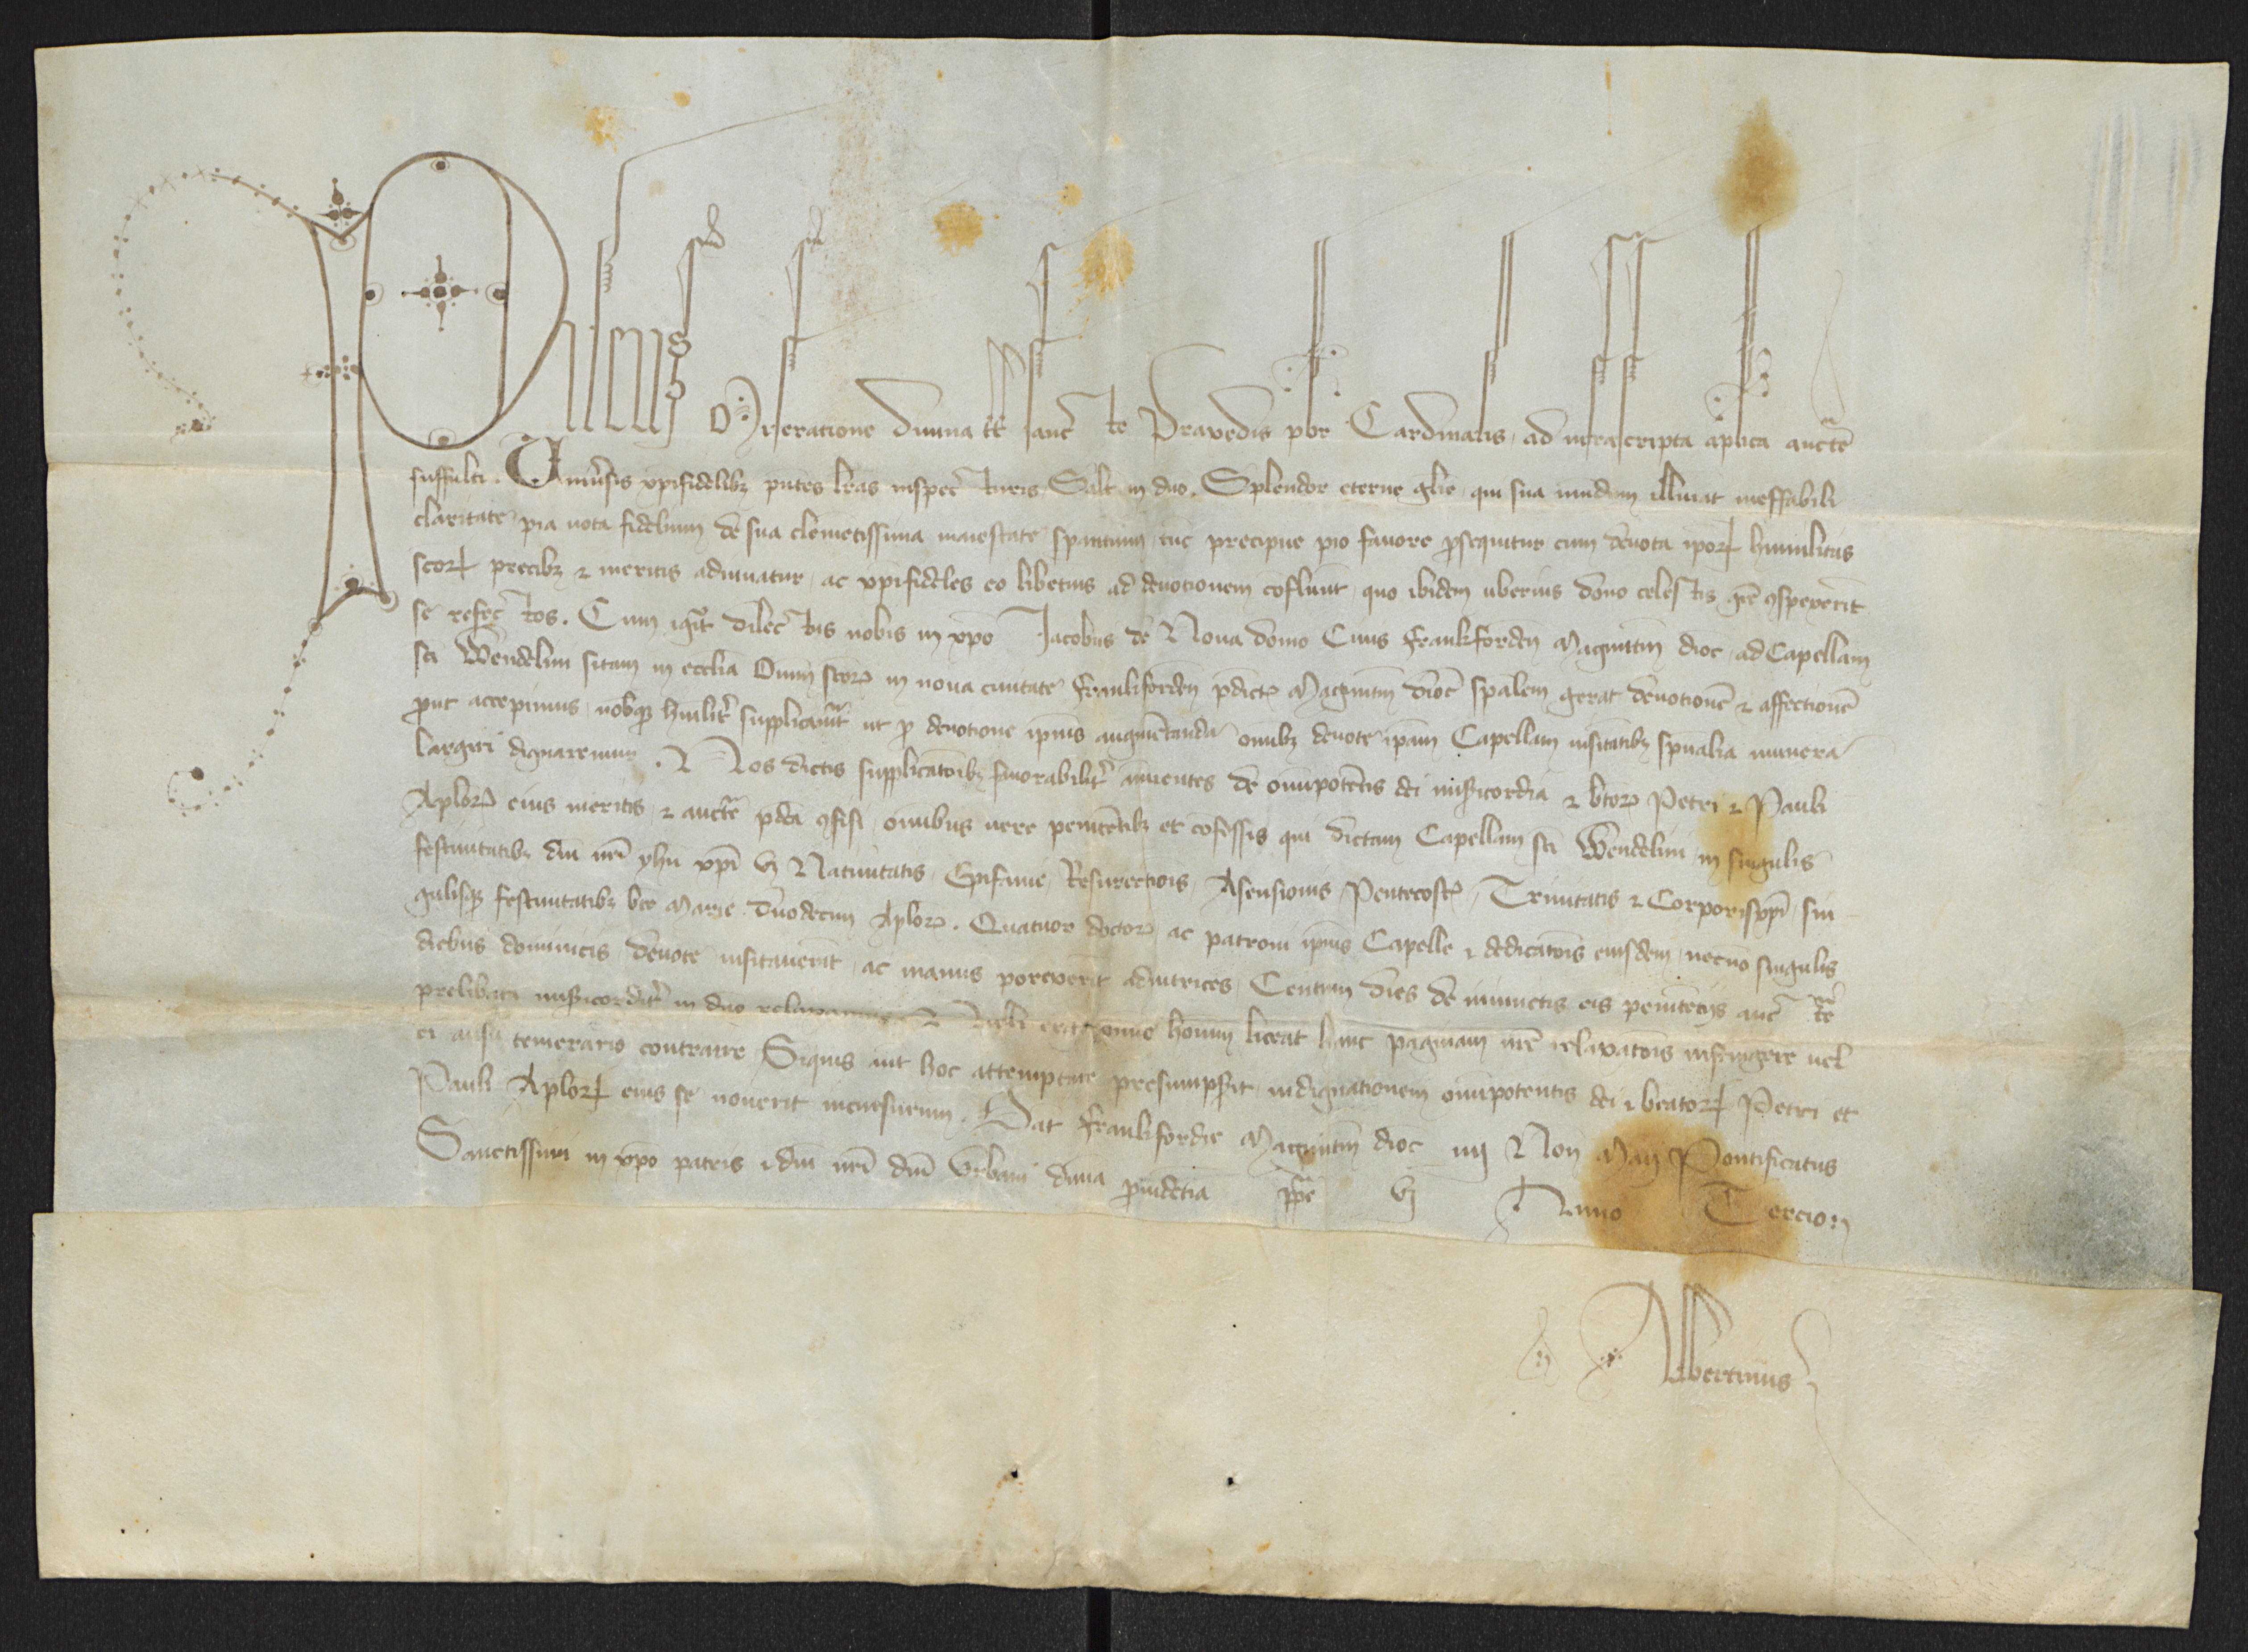 Pileus Miseratione Diuina tt̄ sanc̄te Praxedis pbr̄ Cardinalis, ad infrascripta ap̄lica auctē
suffulti. Uniuersis xp̄ifidelibꝫ pn̄tes lr̄as inspec̄turis Salt̄ in dno. Splendor eterne gl̄ie qui sua mundum illūiat ineffabili
claritate pia uota fidelium de sua clemētissima maiestate sp̄antium tūc precipue pio fauore ꝓsequitur cum deuota ip̄oꝝ humilitas
sc̄oꝝ precibꝫ ⁊ meritis adiuuatur, ac xp̄ifideles eo libētius ad deuotionem cōfluūt, quo ibidem uberius dono celestis gr̄e ꝯspexerīt
se refec̄tos. Cum igit̄ dilec̄tus nobis in xp̄o Jacobus de Noua domo Ciuis Frankforden̄ Magūtin̄ dioc̄ ad Capellam
sc̄i Wendelini sitam in ecclia Om̄iū sc̄oꝝ in noua ciuitate Frankforden̄ p̄dicte Magūtin̄ dioc̄ sp̄alem gerat deuotionē ⁊ affectionē
prout accepimus, nobisqꝫ humilit̄ supplicauit ut ꝓ deuotione ipius augmētanda om̄ibꝫ deuote ip̄am Capellam uisitātibꝫ sp̄ualia munera
largiri dignaremur. Nos dictis supplicatōibꝫ fauorabilit̄ ānuentes de om̄ipotētis dei misericordia ⁊ bt̄oꝝ Petri ⁊ Pauli
Ap̄loꝝ eius meritis ⁊ auctē p̄dc̄a ꝯfisi omibus uere penitētibꝫ et cōfessis qui dictam Capellam sc̄i Wendelini in singulis
festiuitatibꝫ dn̄i nr̄i yhu xp̄i vꝫ Natiuitatis, Epifanie, Resurectiōis, Asensionis Pentecostꝭ, Trinitatis ⁊ Corporisxp̄i, sin
gulisqꝫ festiuitatibꝫ bt̄e Marie duodecim Ap̄loꝝ. Quatuor doctoꝝ ac patroni ipius Capelle ⁊ dedicatōis eiusdem, necnō singulis
diebus dominicis deuote uisitauerīt ac manus porexerīt adiutrices, Centum dies de iniunctis eis penitētijs auctē
prelibata misericordit̄ in dno relaxamus. Nulli ergo omīo hominū liceat hanc paginam nr̄e relaxatōis infringere uel
ei ausu temerario contraire Siquis aut̄ hoc attemptare presumpserit indignationem om̄ipotentis dei ⁊ beatoꝝ Petri et
Pauli Ap̄loꝝ eius se nouerit incursurum. Dat̄ Frankfordie Magūtin̄ dioc̄ iiij Non̄ Maij Pontificatus
Sanctissimi in xp̄o patris ⁊ dn̄i nr̄i dn̄i Urbani diuīa ꝓuidētia pp̄e vj Anno Tercio
Albertinus